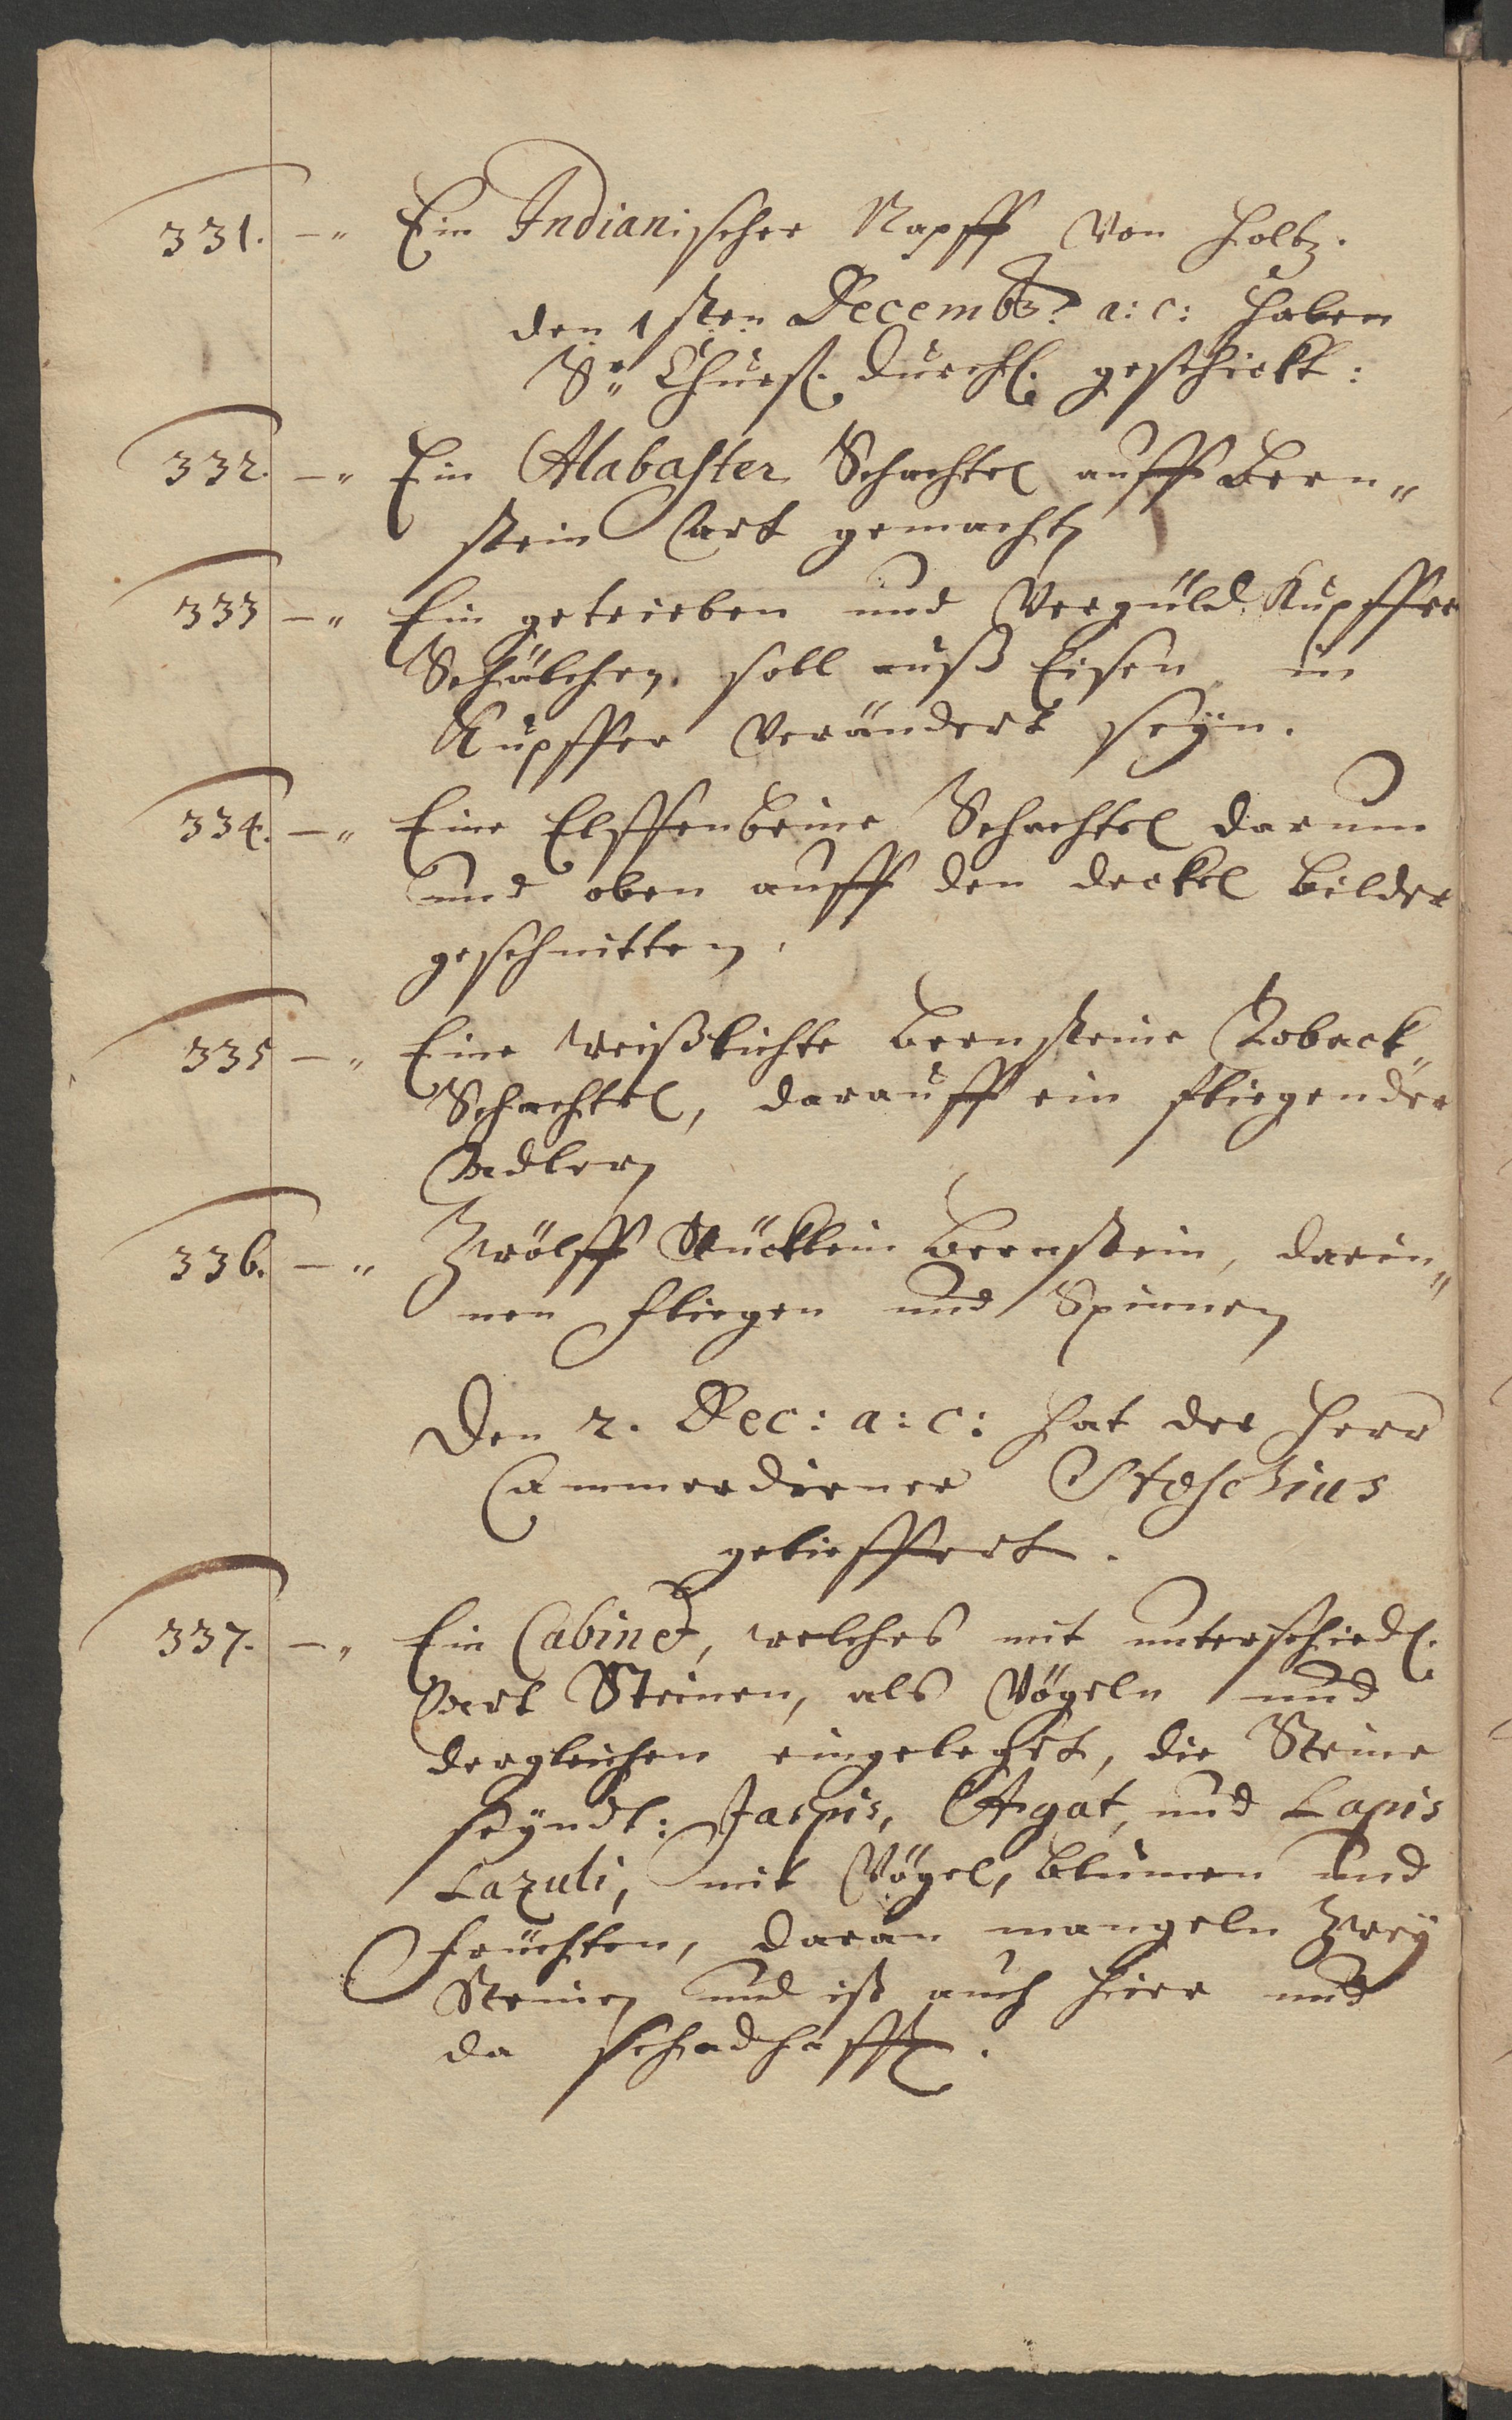 331. —„ Ein Indianischer Napff von Holtz.
den 1sten Decembr. a: c: haben
Se„ Churfl. Durchl. geschickt:
332. —„ Ein Alabaster Schachtel auff Bern„
stein Art gemacht
333 —„ Ein getrieben und Vergüld. Kupffer
Schälchen. soll auß Eisen in
Kupffer verändert seÿn.
334. —„ Eine Elffenbeine Schachtel darum
und oben auff den deckel bilder
geschnitten.
335 —„ Eine weißlichte bernsteine Toback„
Schachtel, darauff ein fliegender
Adler
336. —„ Zwölff Stücklein bernstein, darin„
nen fliegen und Spinnen
Den 2. Dec: a: c: hat der Herr
Cammerdiener Stoschius
gelieffert.
337. —„ Ein Cabinet, welches mit unterschiedl.
Art Steinen, als Vögeln und
dergleichen eingeleget, die Steine
seÿndt: Jaspis, Agat, und Lapis
Lazuli, mit Vögel, blumen und
früchten, daran mangeln Zweÿ
Steine und ist auch hier und
da schadhafft.